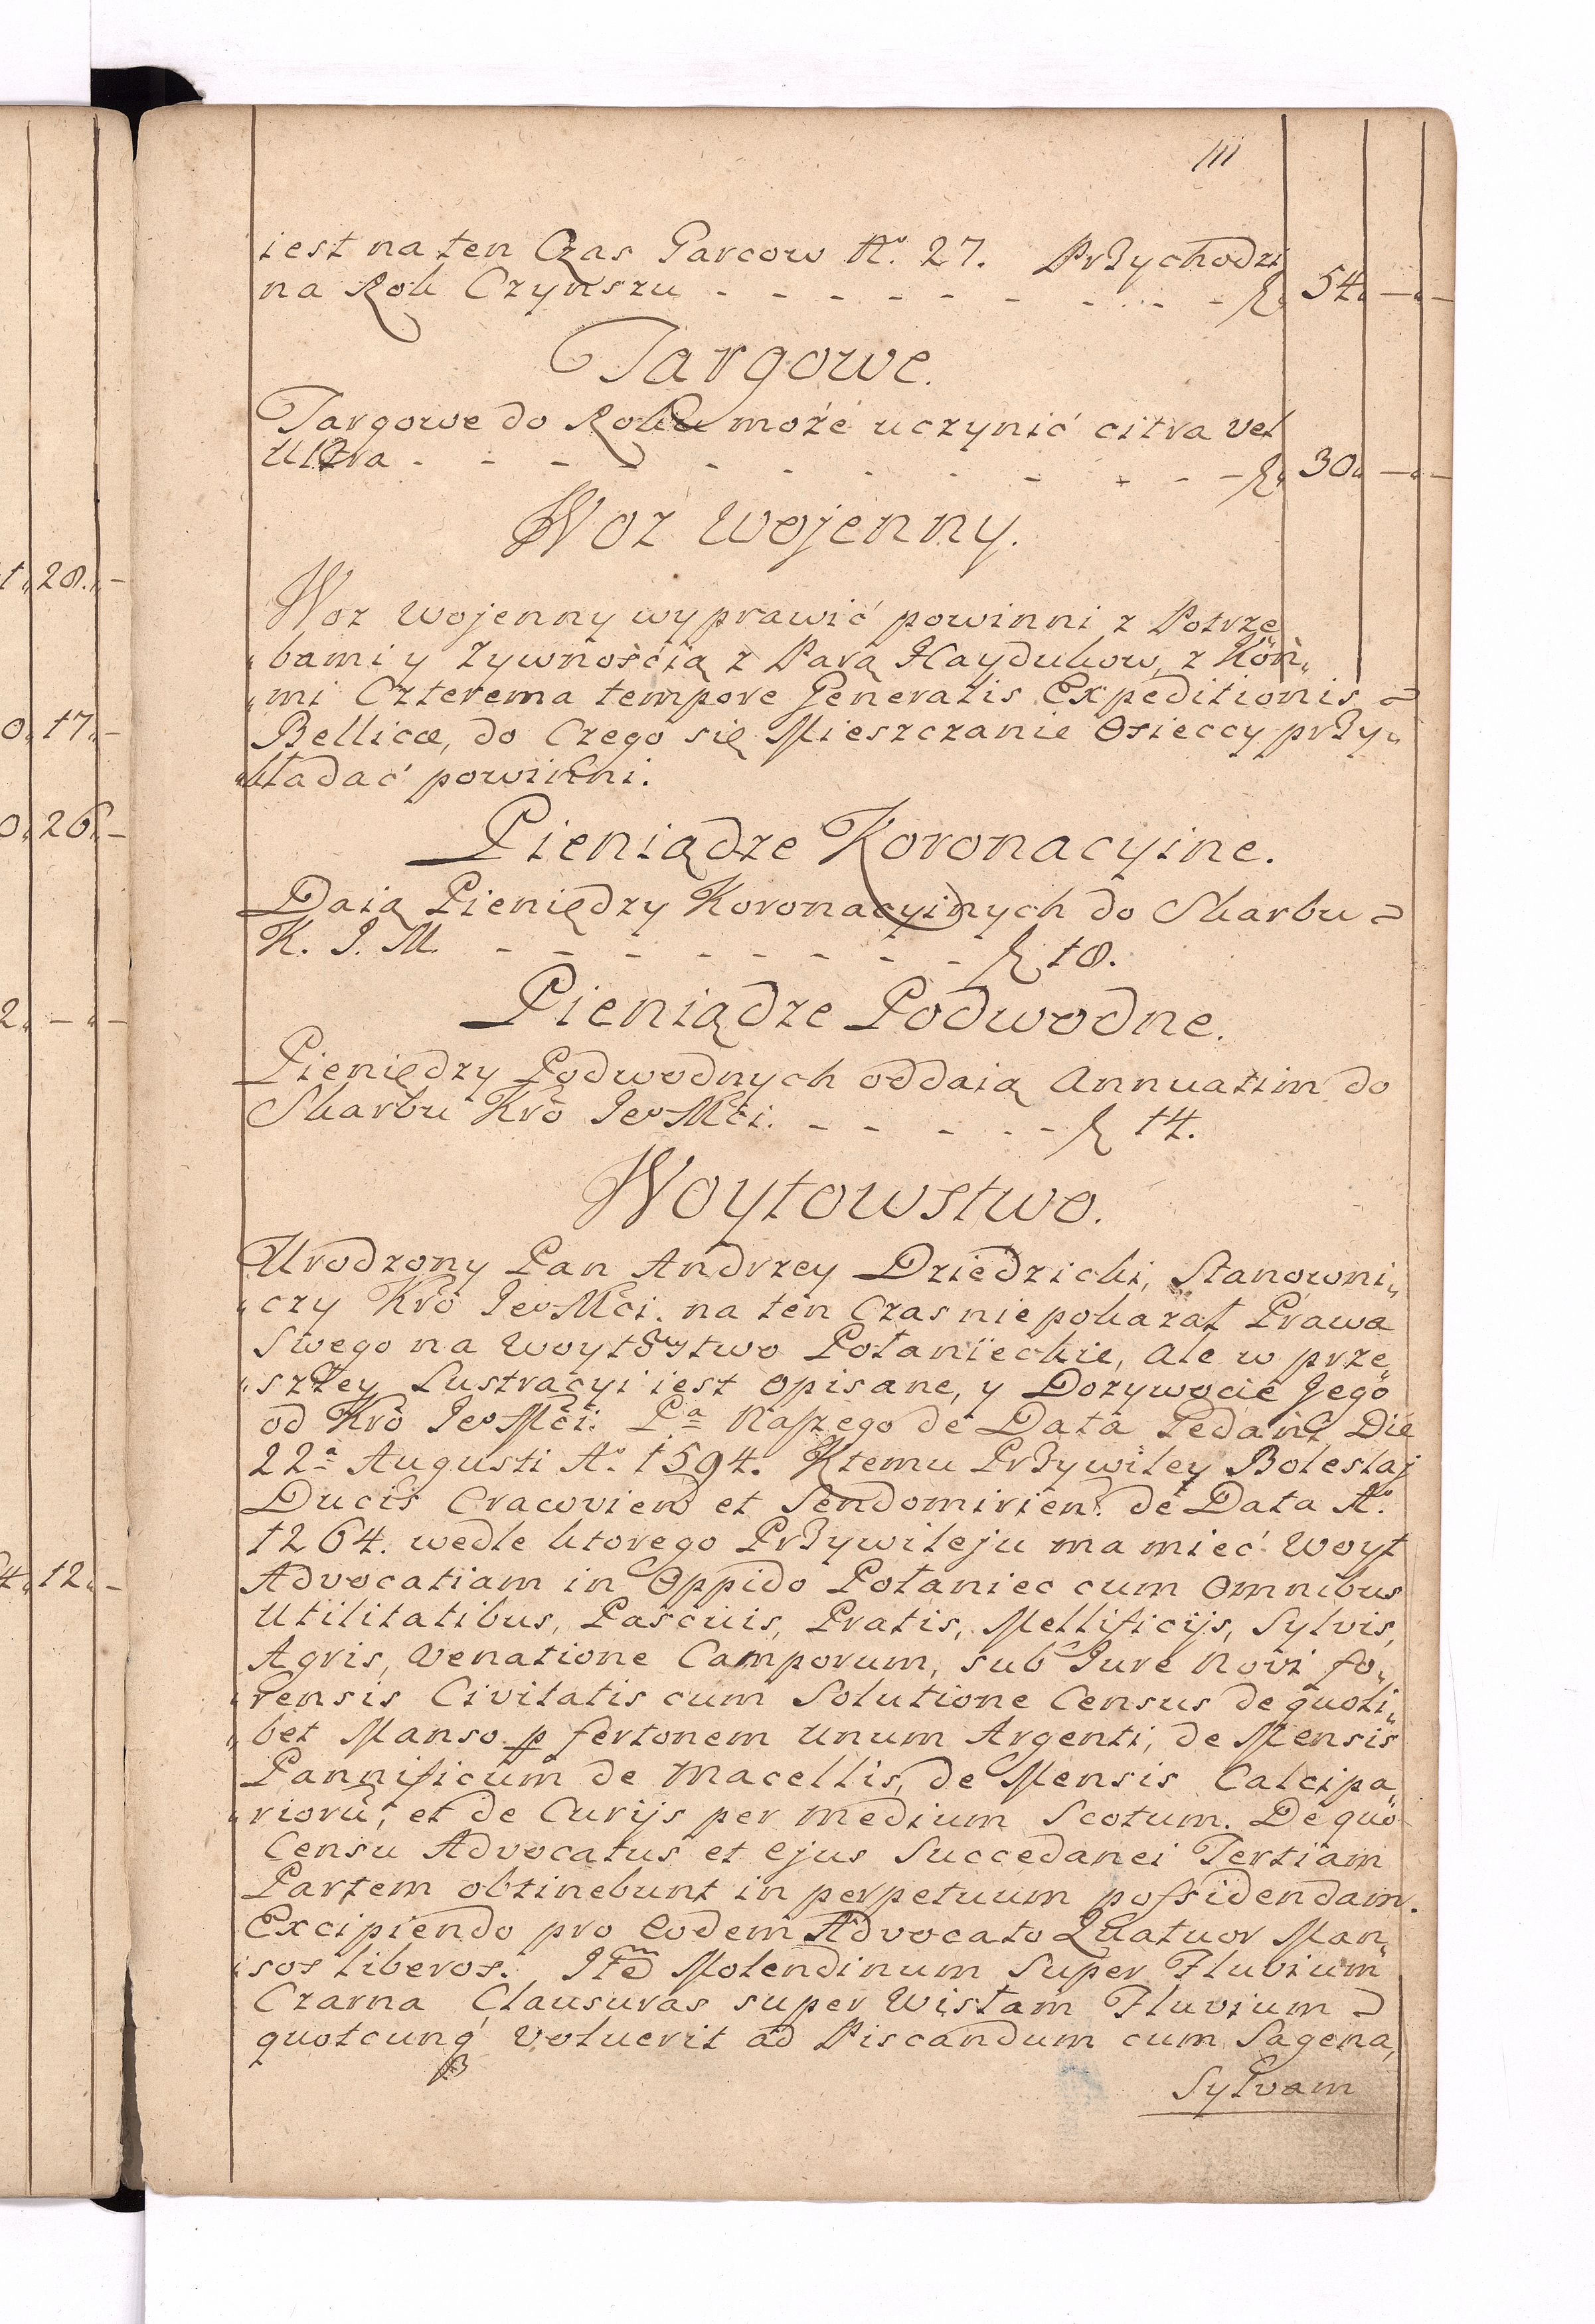 111
iest na ten Czas Garcow N.º 27. Przychodzi
na Rok Czynszu - - - - - - - - - - - f. 54. — —
Targowe.
Targowe do Roku może uczynić citra vel
Ultra - - - - - - - - - - - - f. 30. — —
Woz Wojenny.
Woz Wojenny wyprawić powinni z Potrze
„bami y Zywnością z Parą Haydukow, z Koń„
„mi Czterema tempore Generalis Expeditionis
Bellicæ, do Czego się Mieszczanie Osieccy przy„
„kładać powinni.
Pieniądze Koronacyine.
Daią Pieniędzy Koronacyinych do Skarbu
K. J. M. - - - - - - - - - f. 18.
Pieniądze Podwodne.
Pieniędzy Podwodnych oddaią Annuatim do
Skarbu Kró JeoMci. - - - - - - f. 14.
Woytowstwo.
Urodzony Pan Andrzey Dziedzicki, Stanowni„
„czy Kró JeoMci. na ten Czas nie pokazał Prawa
Swego na Woytowstwo Połanieckie, Ale w prze
„szłey Lustracyi iest opisane, y Dozywocie Jego
od Kró JeoMci. Pª Naszego de Data Die
22ª Augusti Aº 1594. Ktemu Przywiley Boleslaj
Ducis Cracovien et Sendomirien. de Data Aº
1264. wedle ktorego Przywileju ma mieć Woyt
Advocatiam in Oppido Połaniec cum Omnibus
Utilitatibus, Pascuis, Pratis, Mellificijs, Sylvis,
Agris, Venatione Camporum, sub Jure Novi fo„
„rensis Civitatis cum Solutione Census de quoli„
„bet Manso p fertonem Unum Argenti, de Mensis
Pannificum de Macellis, de Mensis Calcipa„
„riorū, et de Curijs per medium Scotum. De quo
Censu Advocatus et Ejus Succedanei Tertiam
Partem obtinebunt in perpetuum possidendam.
Excipiendo pro Eodem Advocato Quatuor Man„
„sos liberos. Itē Molendinum Super Fluvium
Czarna Clausuras super Wisłam Fluvium
quotcunq́ Voluerit ad Piscandum cum Sagena,
Sylvam
28. —
17. —
26. —
2. — —
12. —